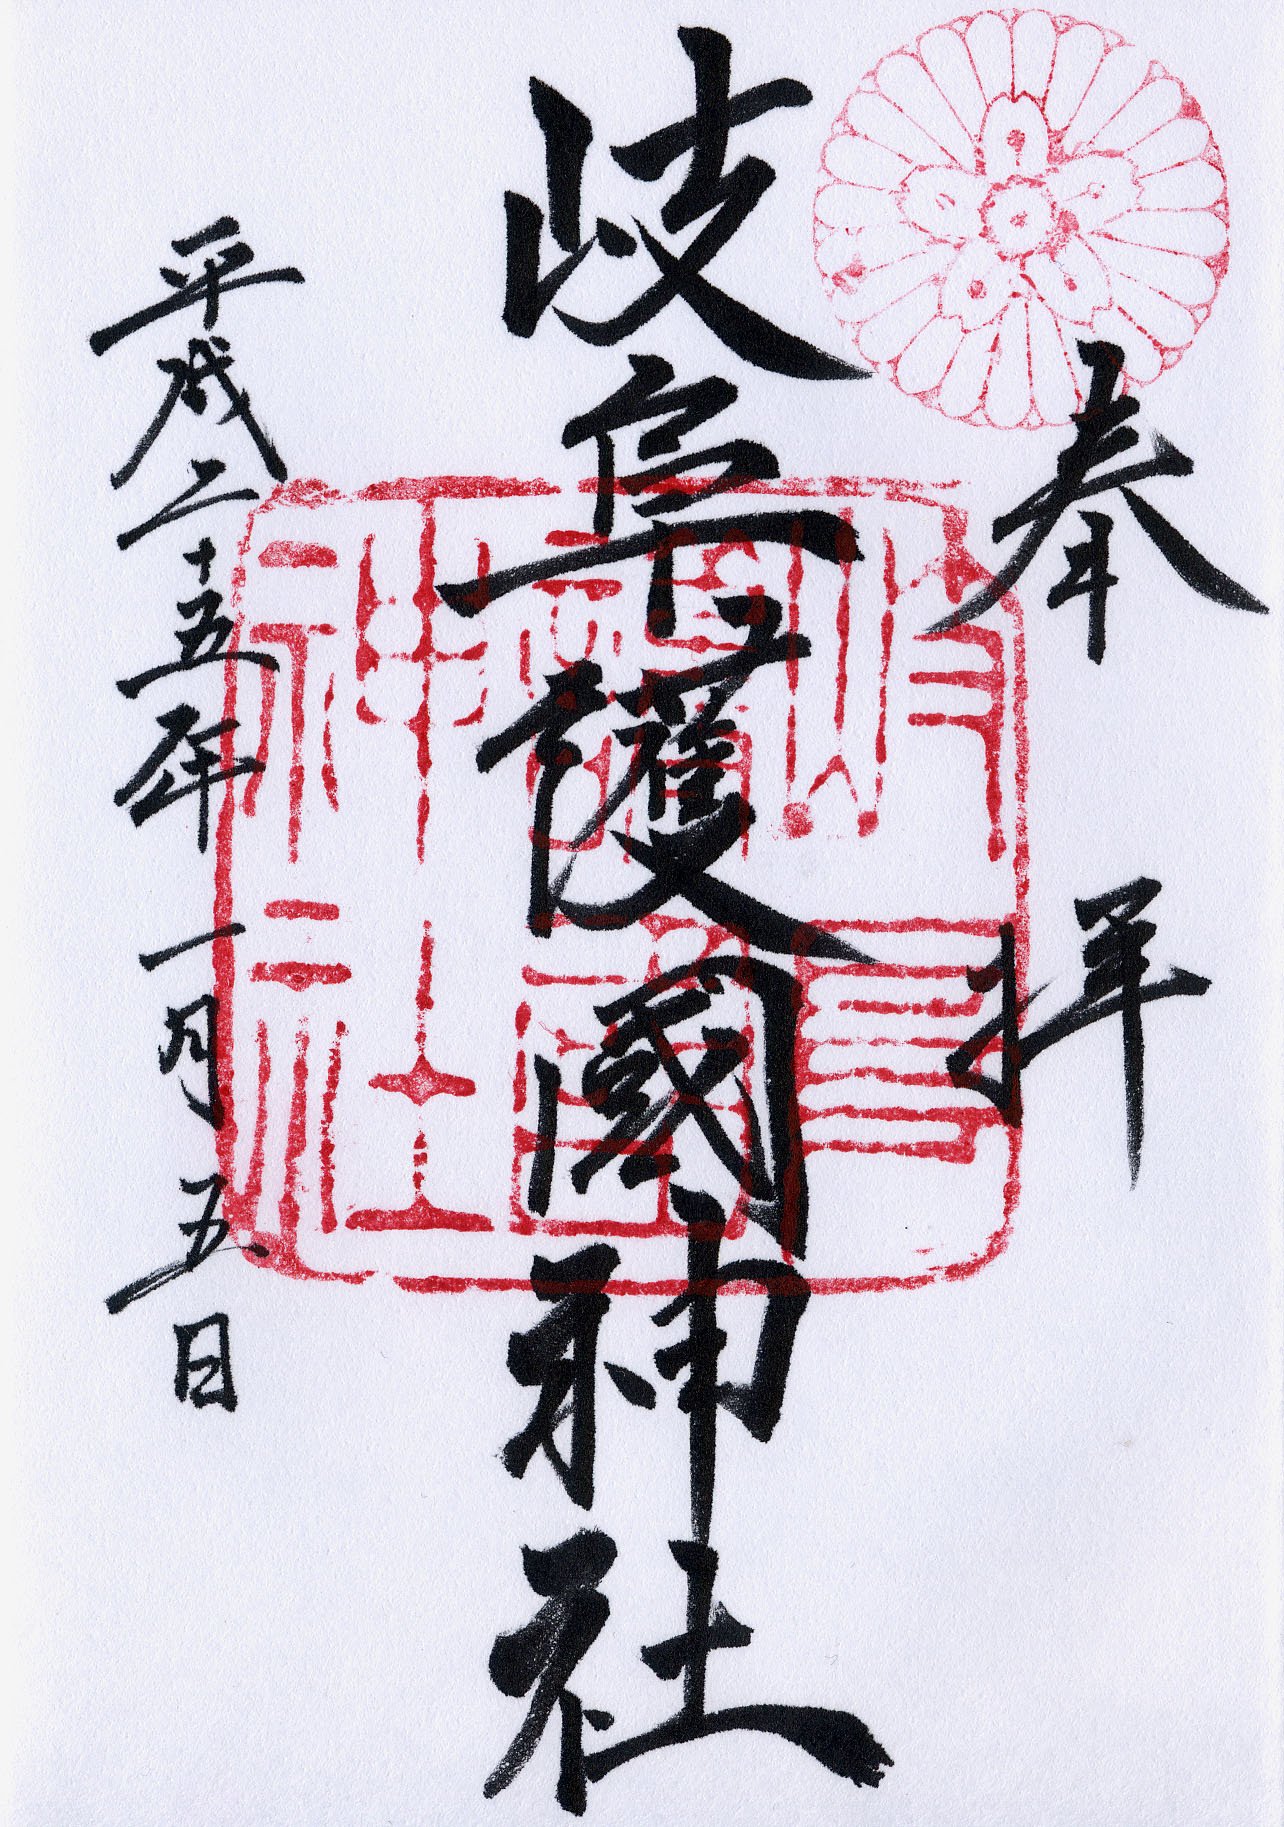 奉拝
岐阜護國神社
平成二十五年一月五日
岐阜
護國
神社